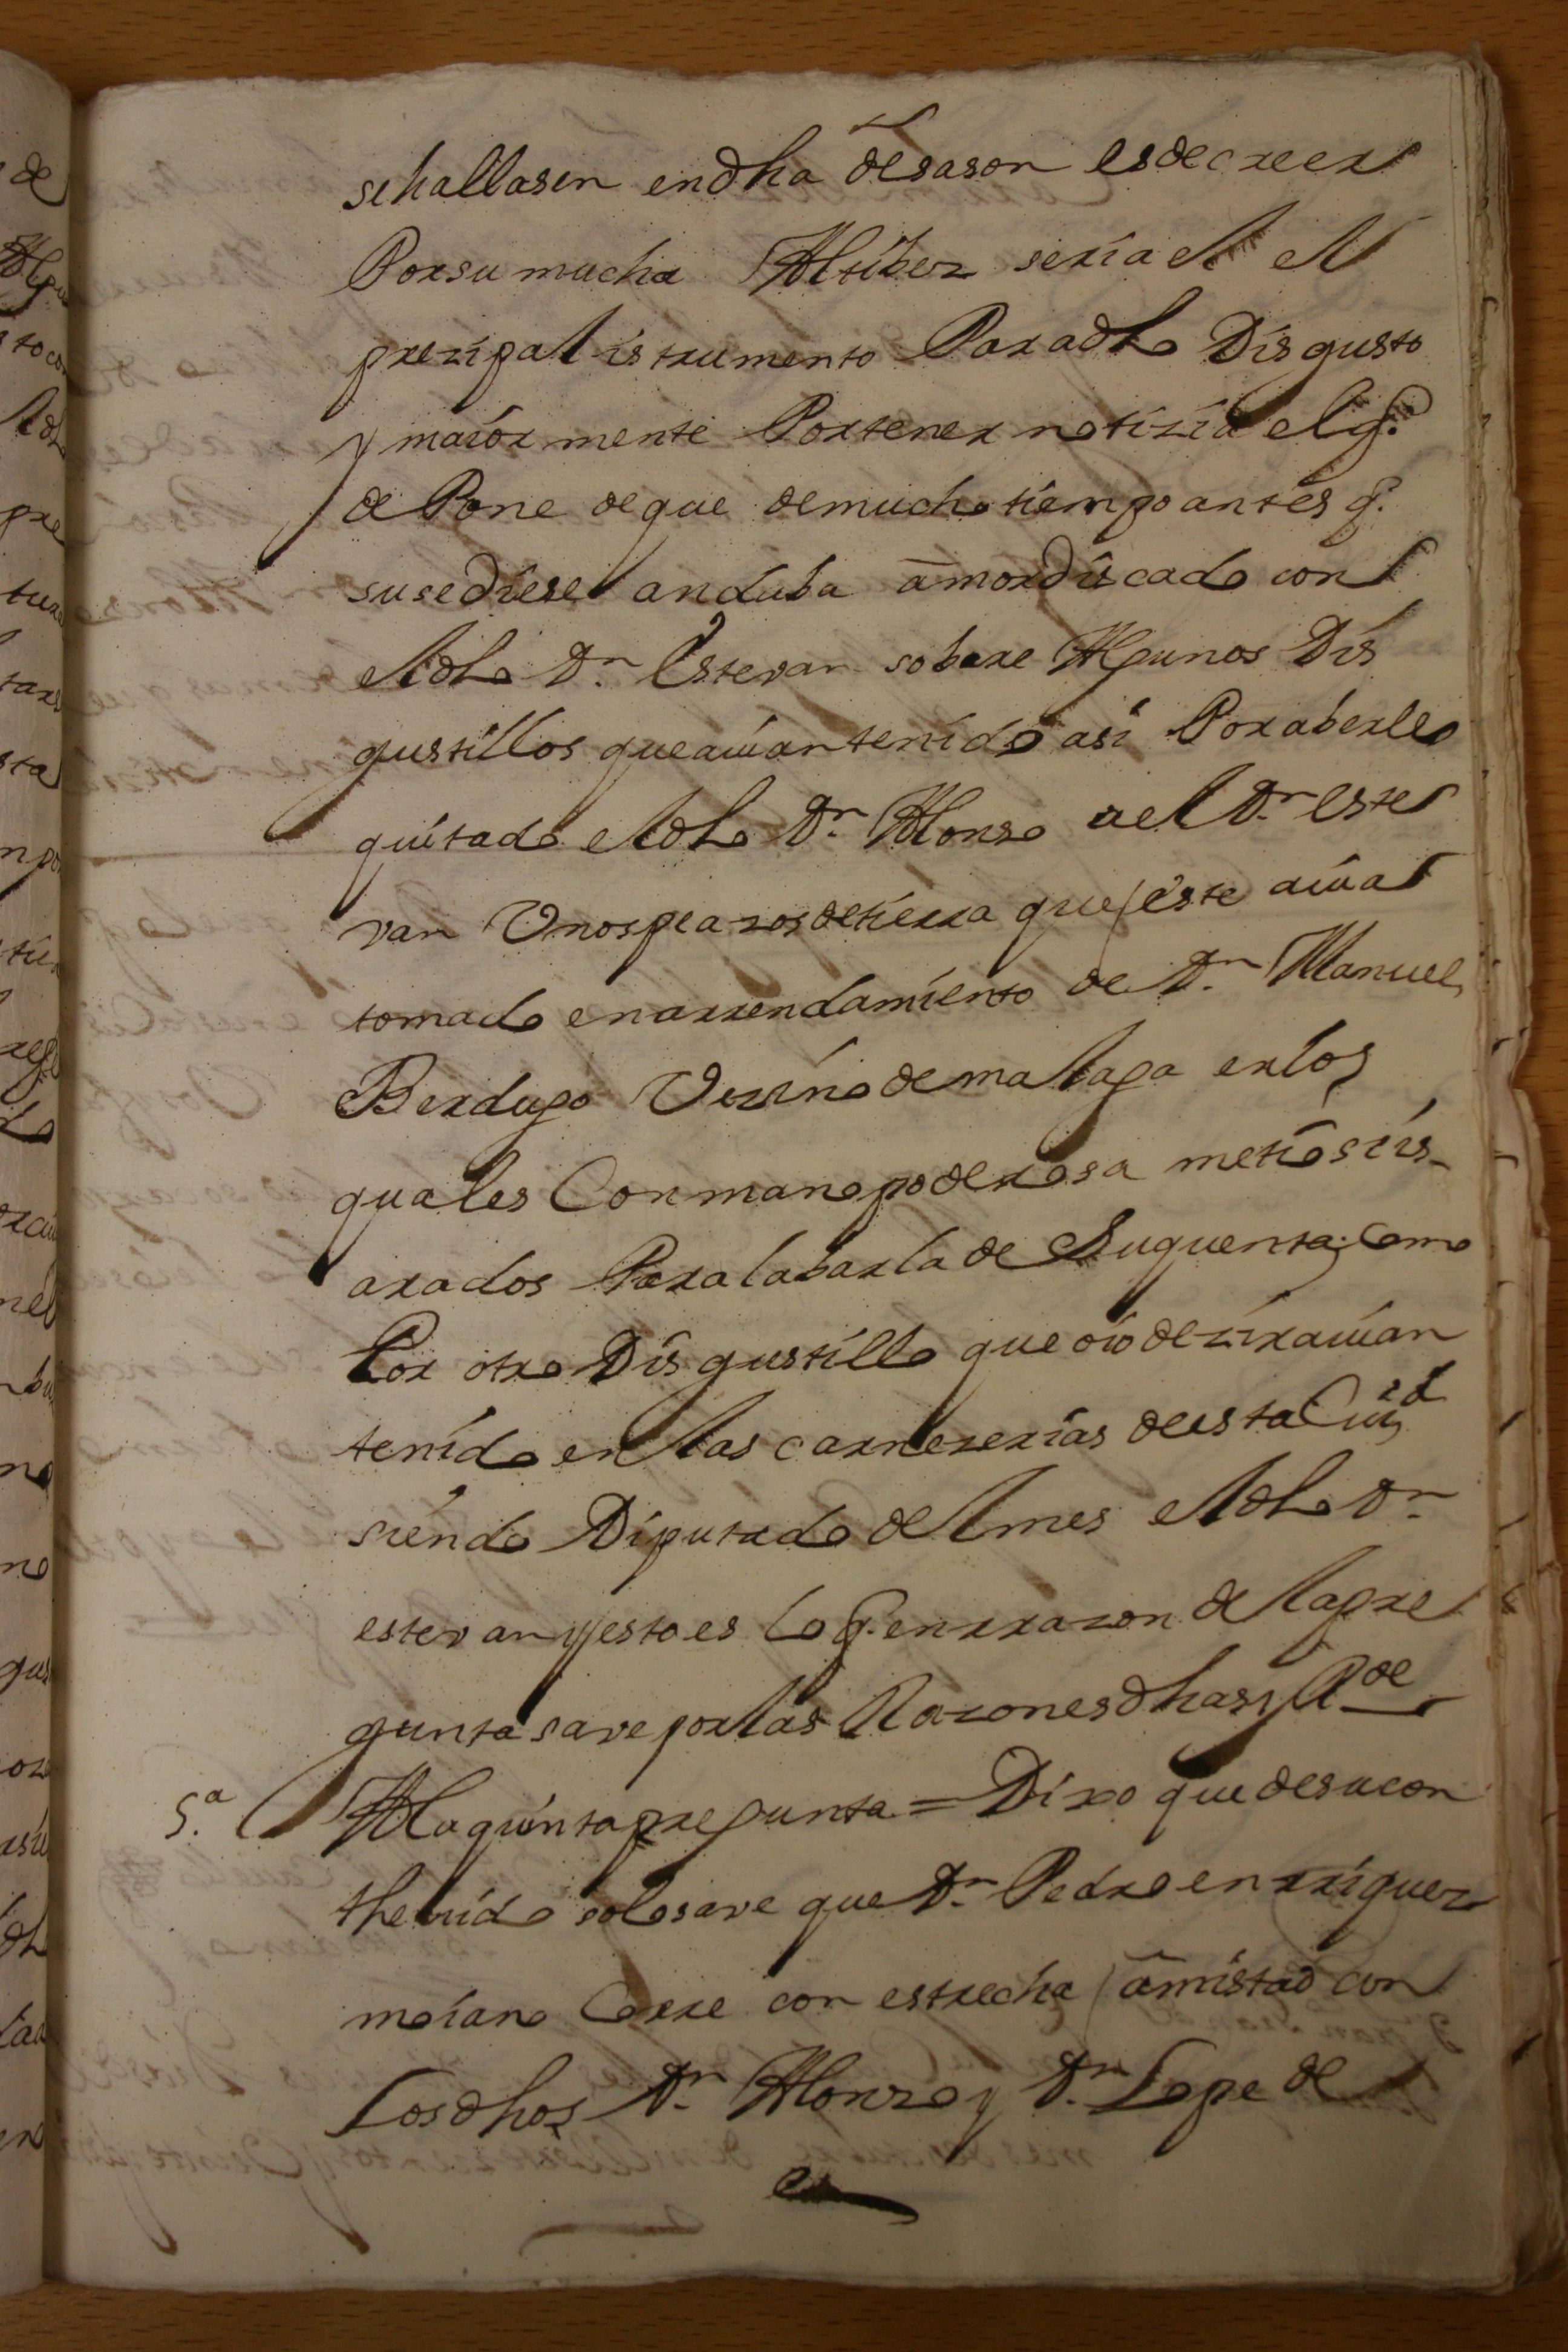 se hallasen en dha desason es de creer
Por su mucha Altibez seria el el
prezipal istrumento Para dho Disgusto
y maior mente Por tener notizia el q.
de Pone de que de mucho tiempo antes q.
susediese andaba amordiscado con
el dho Dn. Estevan sobere Algunos Dis
gustillos que auian tenido asi Por aberle
quitado el dho Dn. Alonso a el Dn. Este
van Unos peazos de tierra que este auia
tomado en arrendamiento de Dn. Manuel
Berdugo Vezino de malaga en los
quales Con mano poderosa metio sus
arados Para labarla de Su quenta; Como
Por otro Disgustillo que oio dezir auian
tenido en las carnezerias de esta Ciud
siendo Diputado del mes el dho Dn.
estevan y esto es lo q. en rrazon de la pre
gunta save por las Razones dhas y Rde
5.a A la quinta pregunta = Dixo que de su con
thenido solo save que Dn. Pedro enrriquez
moiano Corre con estrecha amistad con
Los dhos Dn. Alonso y Dn. Lope de